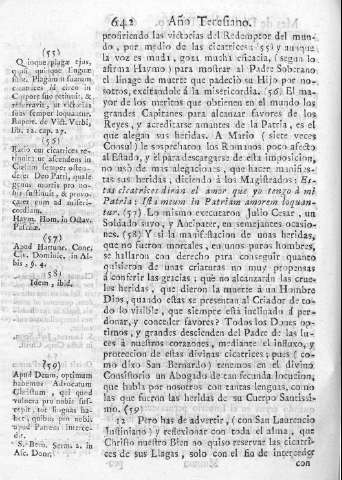 642 Año Teresiano.
(55)
Quinque plagæ ejus,
quasi quinque linguæ
sunt. Plagarum suarum
cicatrices id circo in
Corpore suo retinuit, &
reservavit, ut victorias
suas semper loquantur.
Rupert. de Vict. Verbi,
lib. 12. cap. 27.
(56)
Ratio cur cicatrices
ut ascendens in
Cœlum semper
Deo Patri, quale
genus mortis pro
bis sustinuit, & provo
quet eum ad miseri-
cordiam.
Haym. Hom. in Octav.
Paschæ.
(57)
Apud Hartung. Conc.
Cis. Dominic. in Al-
bis, §. 4.
(58)
Idem, ibid.
(59)
Apud Deum, optimum
habemus Advocatum
Christum, qui quod
vulnera pro nobis
tot linguas ha-
bet, quibus pro nobis
apud Patrem interce-
dit.
S. Bern. Serm. 2. in
Asc. Dom.
profiriendo las victorias del Redemptor del mun-
do, por medio de las cicatrices: (55) y aunque
la voz es muda, goza mucha eficacia, (segun lo
afirma Haymo) para mostrar al Padre Soberano
el linage de muerte que padeciò su Hijo por no-
sotros, excitandole à la misericordia. (56) El ma-
yor de los meritos que obtienen en el mundo los
grandes Capitanes para alcanzar favores de los
Reyes, y acreditarse amantes de la Patria, es el
que alegan sus heridas. A Mario (siete veces
Consul) le sospecharon los Romanos poco afecto
al Estado, y èl para descargarse de esta imposicion,
no usò de mas alegaciones, que hacer manifies-
tas sus heridas, diciendo à los Magistrados: Es-
tas cicatrices diràn el amor que yo tengo à mi
Patria: Ista meum in Patriam amorem loquan-
tur. (57) Lo mismo executaron Julio Cesar, un
Soldado suyo, y Antipater, en semejantes ocasio-
nes. (58) Y si la manifestacion de unas heridas,
que no fueron mortales, en unos puros hombres,
se hallaron con derecho para conseguir quanto
quisieron de unas criaturas no muy propensas
à conferir las gracias; què no alcanzaràn las crue-
les heridas, que dieron la muerte à un Hombre
Dios, quando estas se presentan al Criador de to-
do lo visible, que siempre està inclinado à per-
donar, y conceder favores? Todos los Dones op-
timos, y grandes descienden del Padre de las lu-
ces à nuestros corazones, mediante el influxo, y
proteccion de estas divinas cicatrices; pues (co-
mo dixo San Bernardo) tenemos en el divino
Consistorio un Abogado de tan fecunda locucion,
que habla por nosotros con tantas lenguas, como
las que fueron las heridas de su Cuerpo Santissi-
mo. (59)
12 Pero has de advertir, (con San Laurencio
Justiniano) y reflexionar con toda el alma, que
Christo nuestro Bien no quiso reservar las cicatri-
ces de sus Llagas, solo con el fin de interceder
con